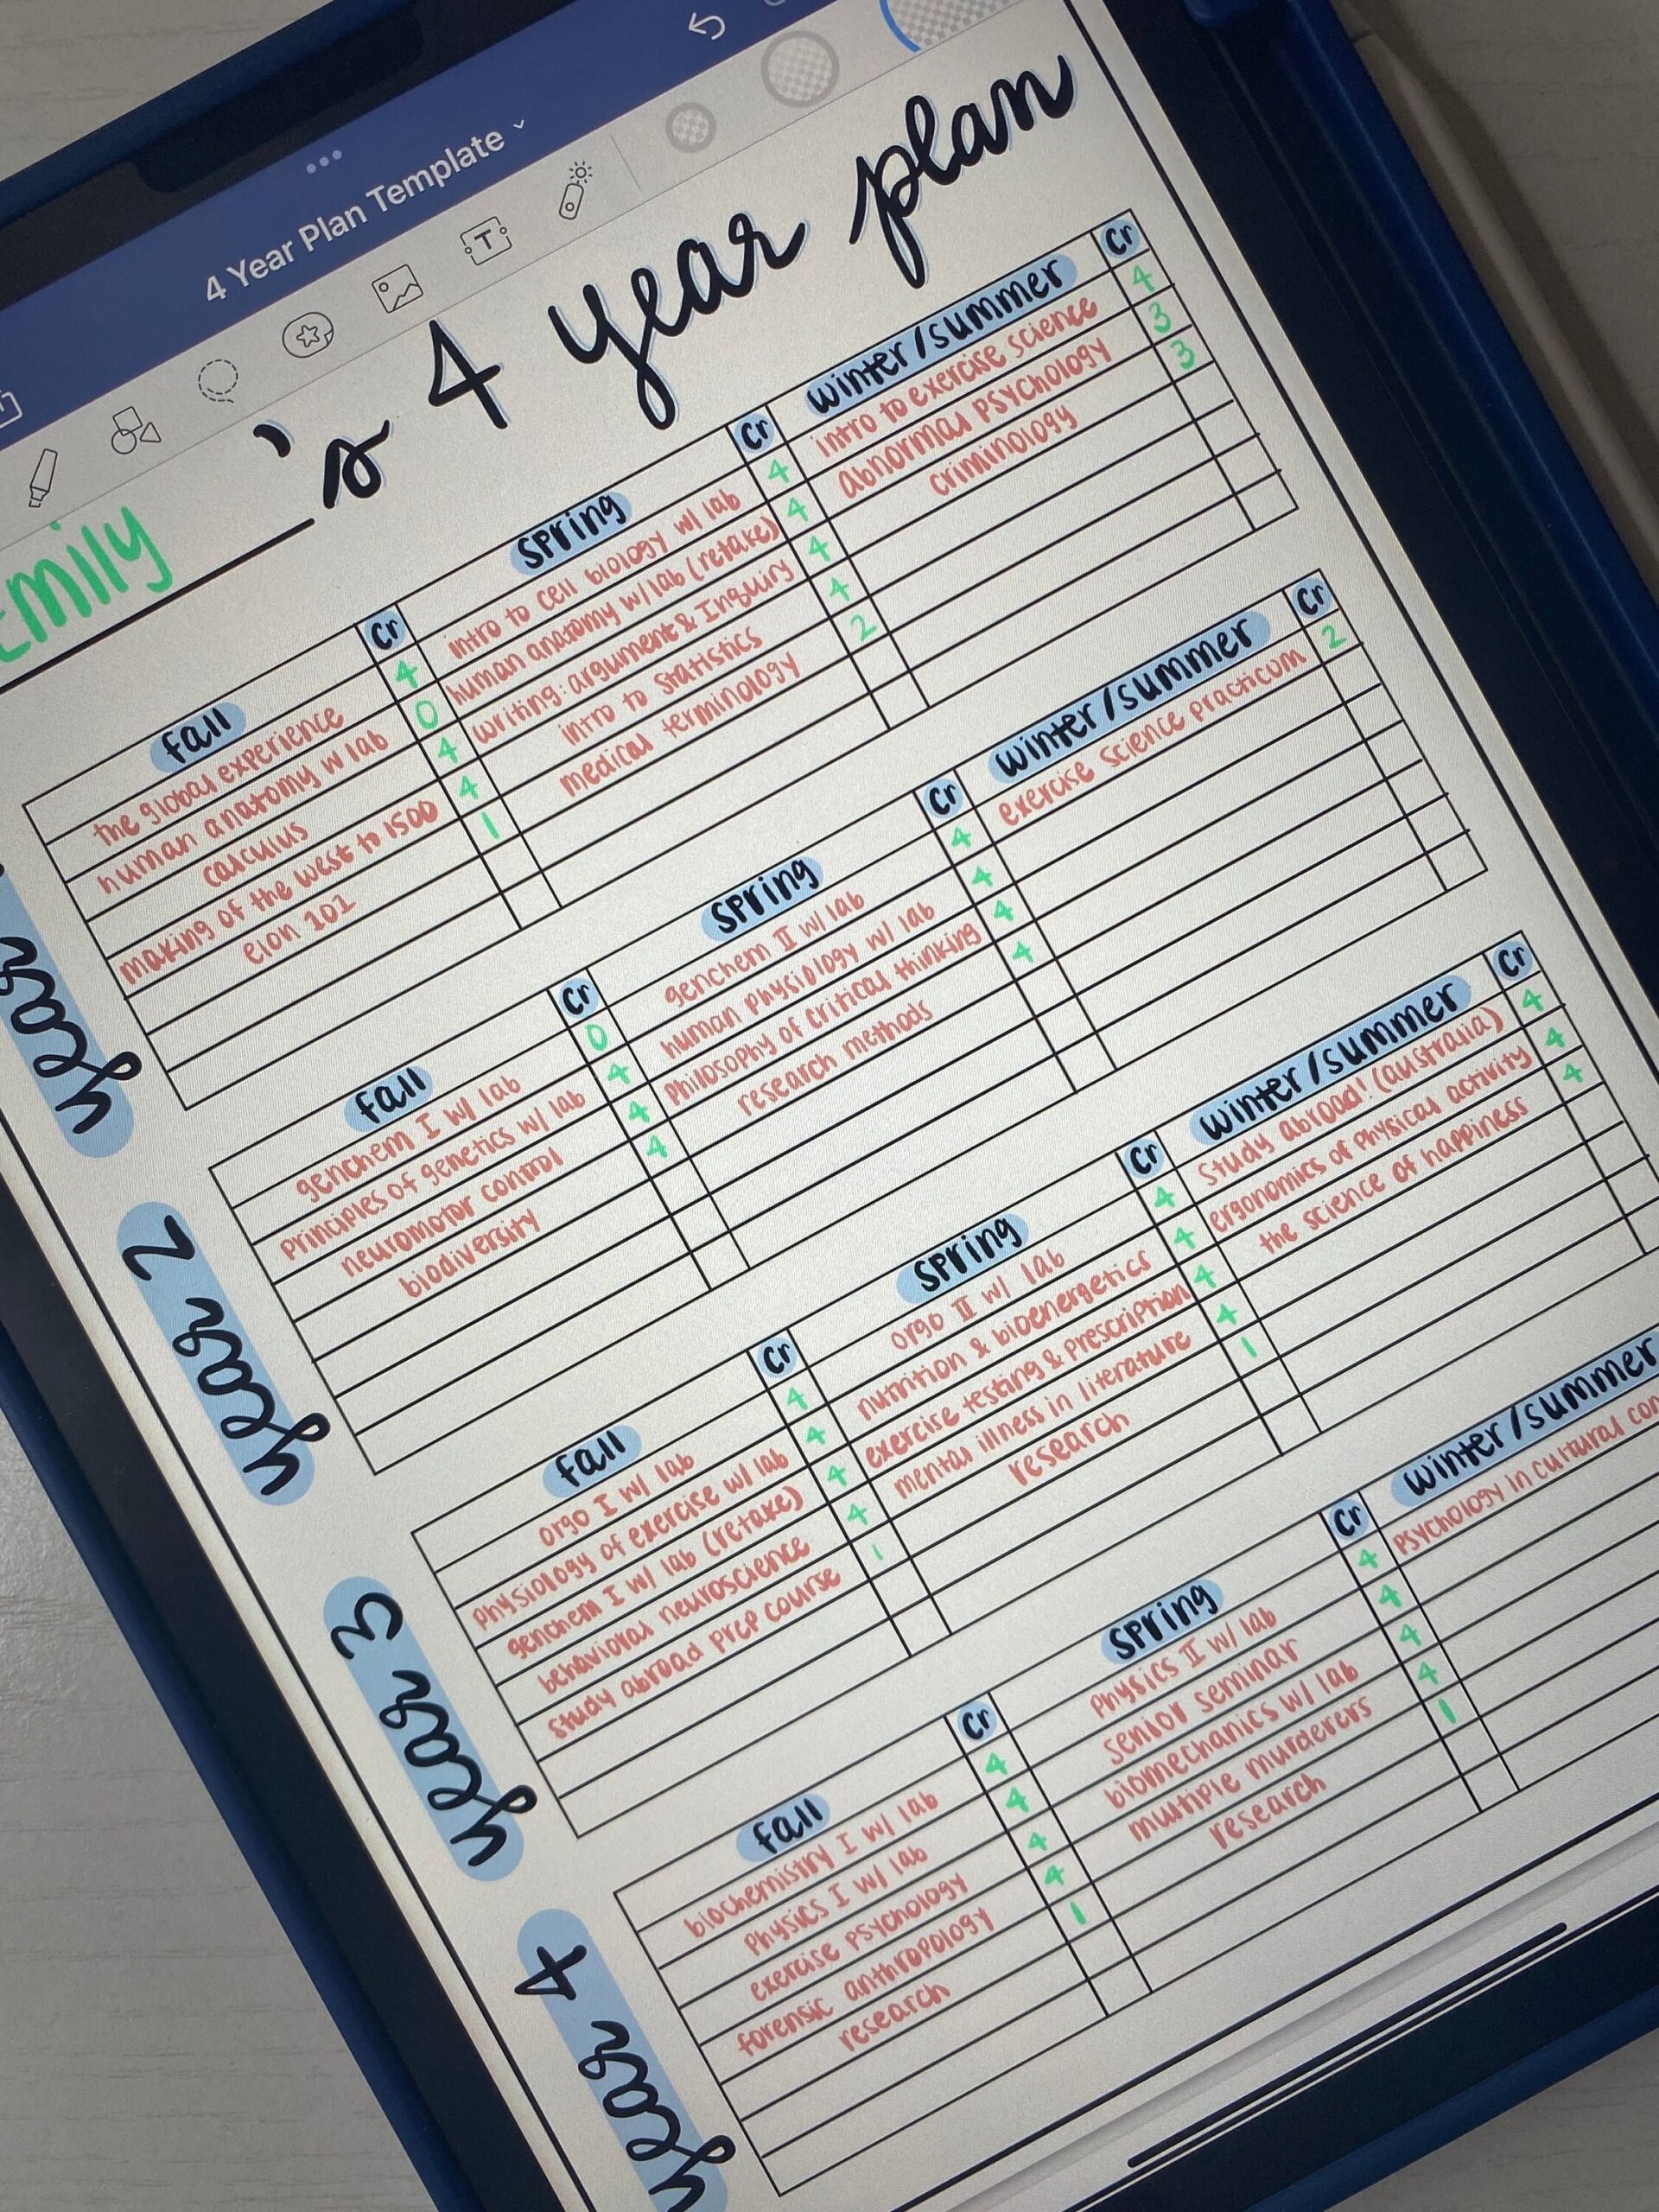 4 Year Plan Template
Emily 's 4 year plan
year
fall Cr
the global experience 4
human anatomy w lab 0
calculus 4
making of the west to 1500 4
elon 101 1
spring Cr
intro to cell biology w/ lab 4
human anatomy w/ lab (retake) 4
writing: argument & Inquiry 4
intro to statistics 4
medical terminology 2
winter/summer Cr
intro to exercise science 4
abnormal psychology 3
criminology 3
year 2
fall Cr
genchem I w/ lab 0
principles of genetics w/ lab 4
neuromotor control 4
biodiversity 4
spring Cr
genchem II w/ lab 4
human physiology w/ lab 4
philosophy of critical thinking 4
research methods 4
winter/summer Cr
exercise science practicum 2
year 3
fall Cr
orgo I w/ lab 4
physiology of exercise w/ lab 4
genchem I w/ lab (retake) 4
behavioral neuroscience 4
study abroad prep course 1
spring Cr
orgo II w/ lab 4
nutrition & bioenergetics 4
exercise testing & prescription 4
mental illness in literature 4
research 1
winter/summer Cr
study abroad! (australia) 4
ergonomics of physical activity 4
the science of happiness 4
year 4
fall Cr
biochemistry I w/ lab 4
physics I w/ lab 4
exercise psychology 4
forensic anthropology 4
research 1
spring Cr
physics II w/ lab 4
senior seminar 4
biomechanics w/ lab 4
multiple murderers 4
research 1
winter/summer
psychology in cultural con